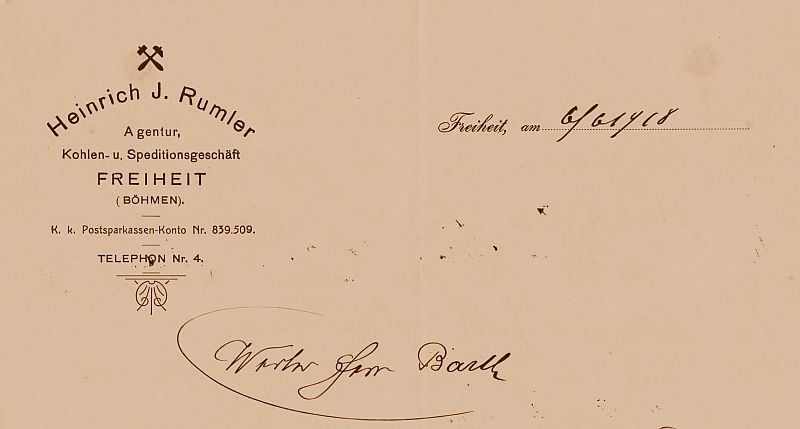 Heinrich J. Rumler
Agentur,
Kohlen- u. Speditionsgeschäft
FREIHEIT
(BÖHMEN).
K. k. Postsparkassen-Konto Nr. 839.509.
TELEPHON Nr. 4.
Freiheit, am 6/6 1918
Werter Herr Barth